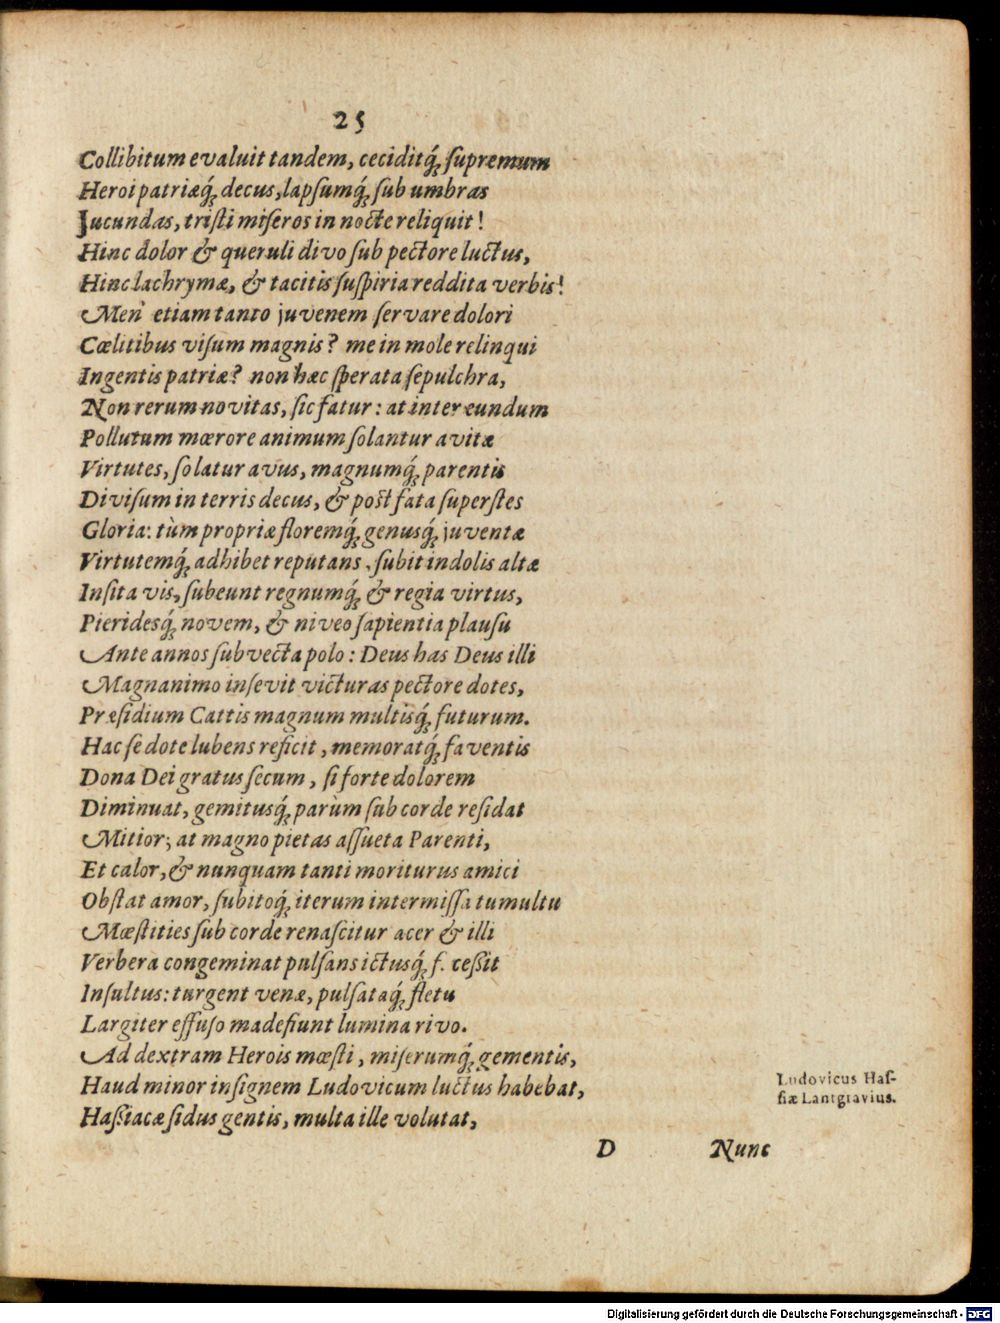 25
Collibitum evaluit tandem, ceciditq́; ſupremum
Heroi patriæq́; decus, lapſumq́; ſub umbras
Jucundas, triſti miſeros in nocte reliquit!
Hinc dolor & queruli divo ſub pectore luctus,
Hinc lachrymæ, & tacitis ſuſpiria reddita verbis!
Men' etiam tanto juvenem ſervare dolori
Cœlitibus viſum magnis? me in mole relinqui
Ingentis patriæ? non hæc ſperata ſepulchra,
Non rerum novitas, ſic fatur: at inter eundum
Pollutum mœrore animum ſolantur avitæ
Virtutes, ſolatur avus, magnumq́; parentis
Diviſum in terris decus, & poſt fata ſuperſtes
Gloria: tùm propriæ floremq́; genusq́; juventæ
Virtutemq́; adhibet reputans, ſubit indolis altæ
Inſita vis, ſubeunt regnumq́; & regia virtus,
Pieridesq́; novem, & niveo ſapientia plauſu
Ante annos ſubvecta polo: Deus has Deus illi
Magnanimo inſevit victuras pectore dotes,
Præſidium Cattis magnum multisq́; futurum.
Hac ſe dote lubens reficit, memoratq́; faventis
Dona Dei gratus ſecum, ſi forte dolorem
Diminuat, gemitusq́; parùm ſub corde reſidat
Mitior; at magno pietas aſſueta Parenti,
Et calor, & nunquam tanti moriturus amici
Obſtat amor, ſubitoq́; iterum intermiſſa tumultu
Mœſtities ſub corde renaſcitur acer & illi
Verbera congeminat pulſans ictusq́; f. ceßit
Inſultus: turgent venæ, pulſataq́; fletu
Largiter effuſo madefiunt lumina rivo.
Ad dextram Herois mœſti, miſerumq́; gementis,
Haud minor inſignem Ludovicum luctus habebat,
Haßiacæ ſidus gentis, multa ille volutat,
Ludovicus Haſ-
ſiæ Lantgravius.
D Nunc
Digitalisierung gefördert durch die Deutsche Forschungsgemeinschaft - DFG